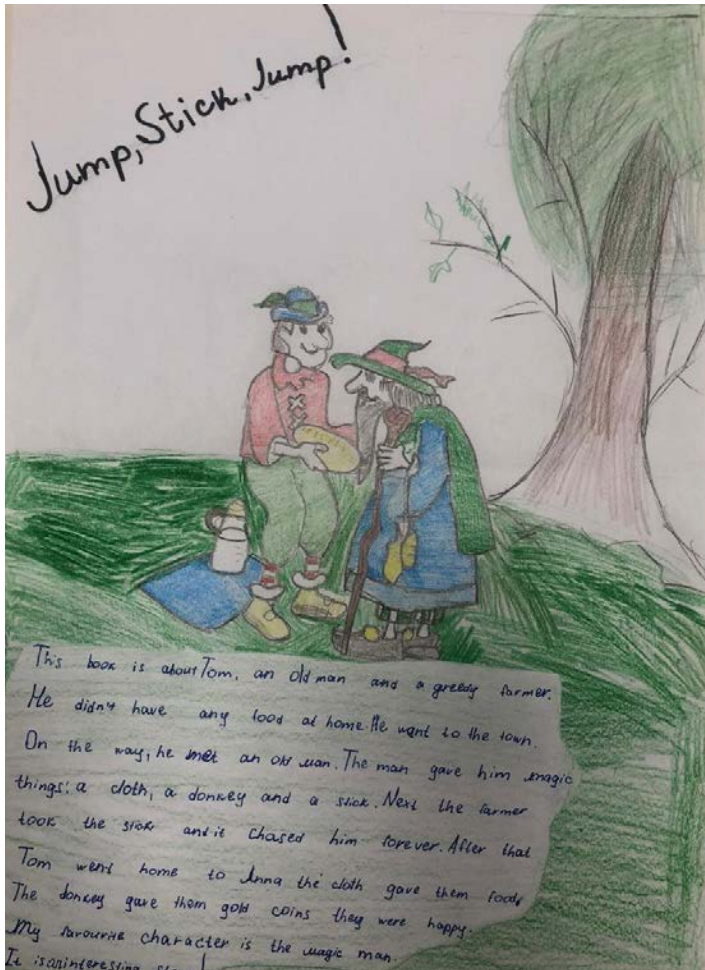 Jump, Stick, Jump!
This book is about Tom, an old man and a greedy farmer.
He didn't have any food at home. He want to the town.
On the way, he met an old man. The man gave him magic
things: a cloth, a donkey and a stick. Next the farmer
took the stick and it chased him forever. After that
Tom went home to Anna the cloth gave them food,
The donkey gave them gold coins they were happy.
My favourite character is the magic man.
It is an interesting